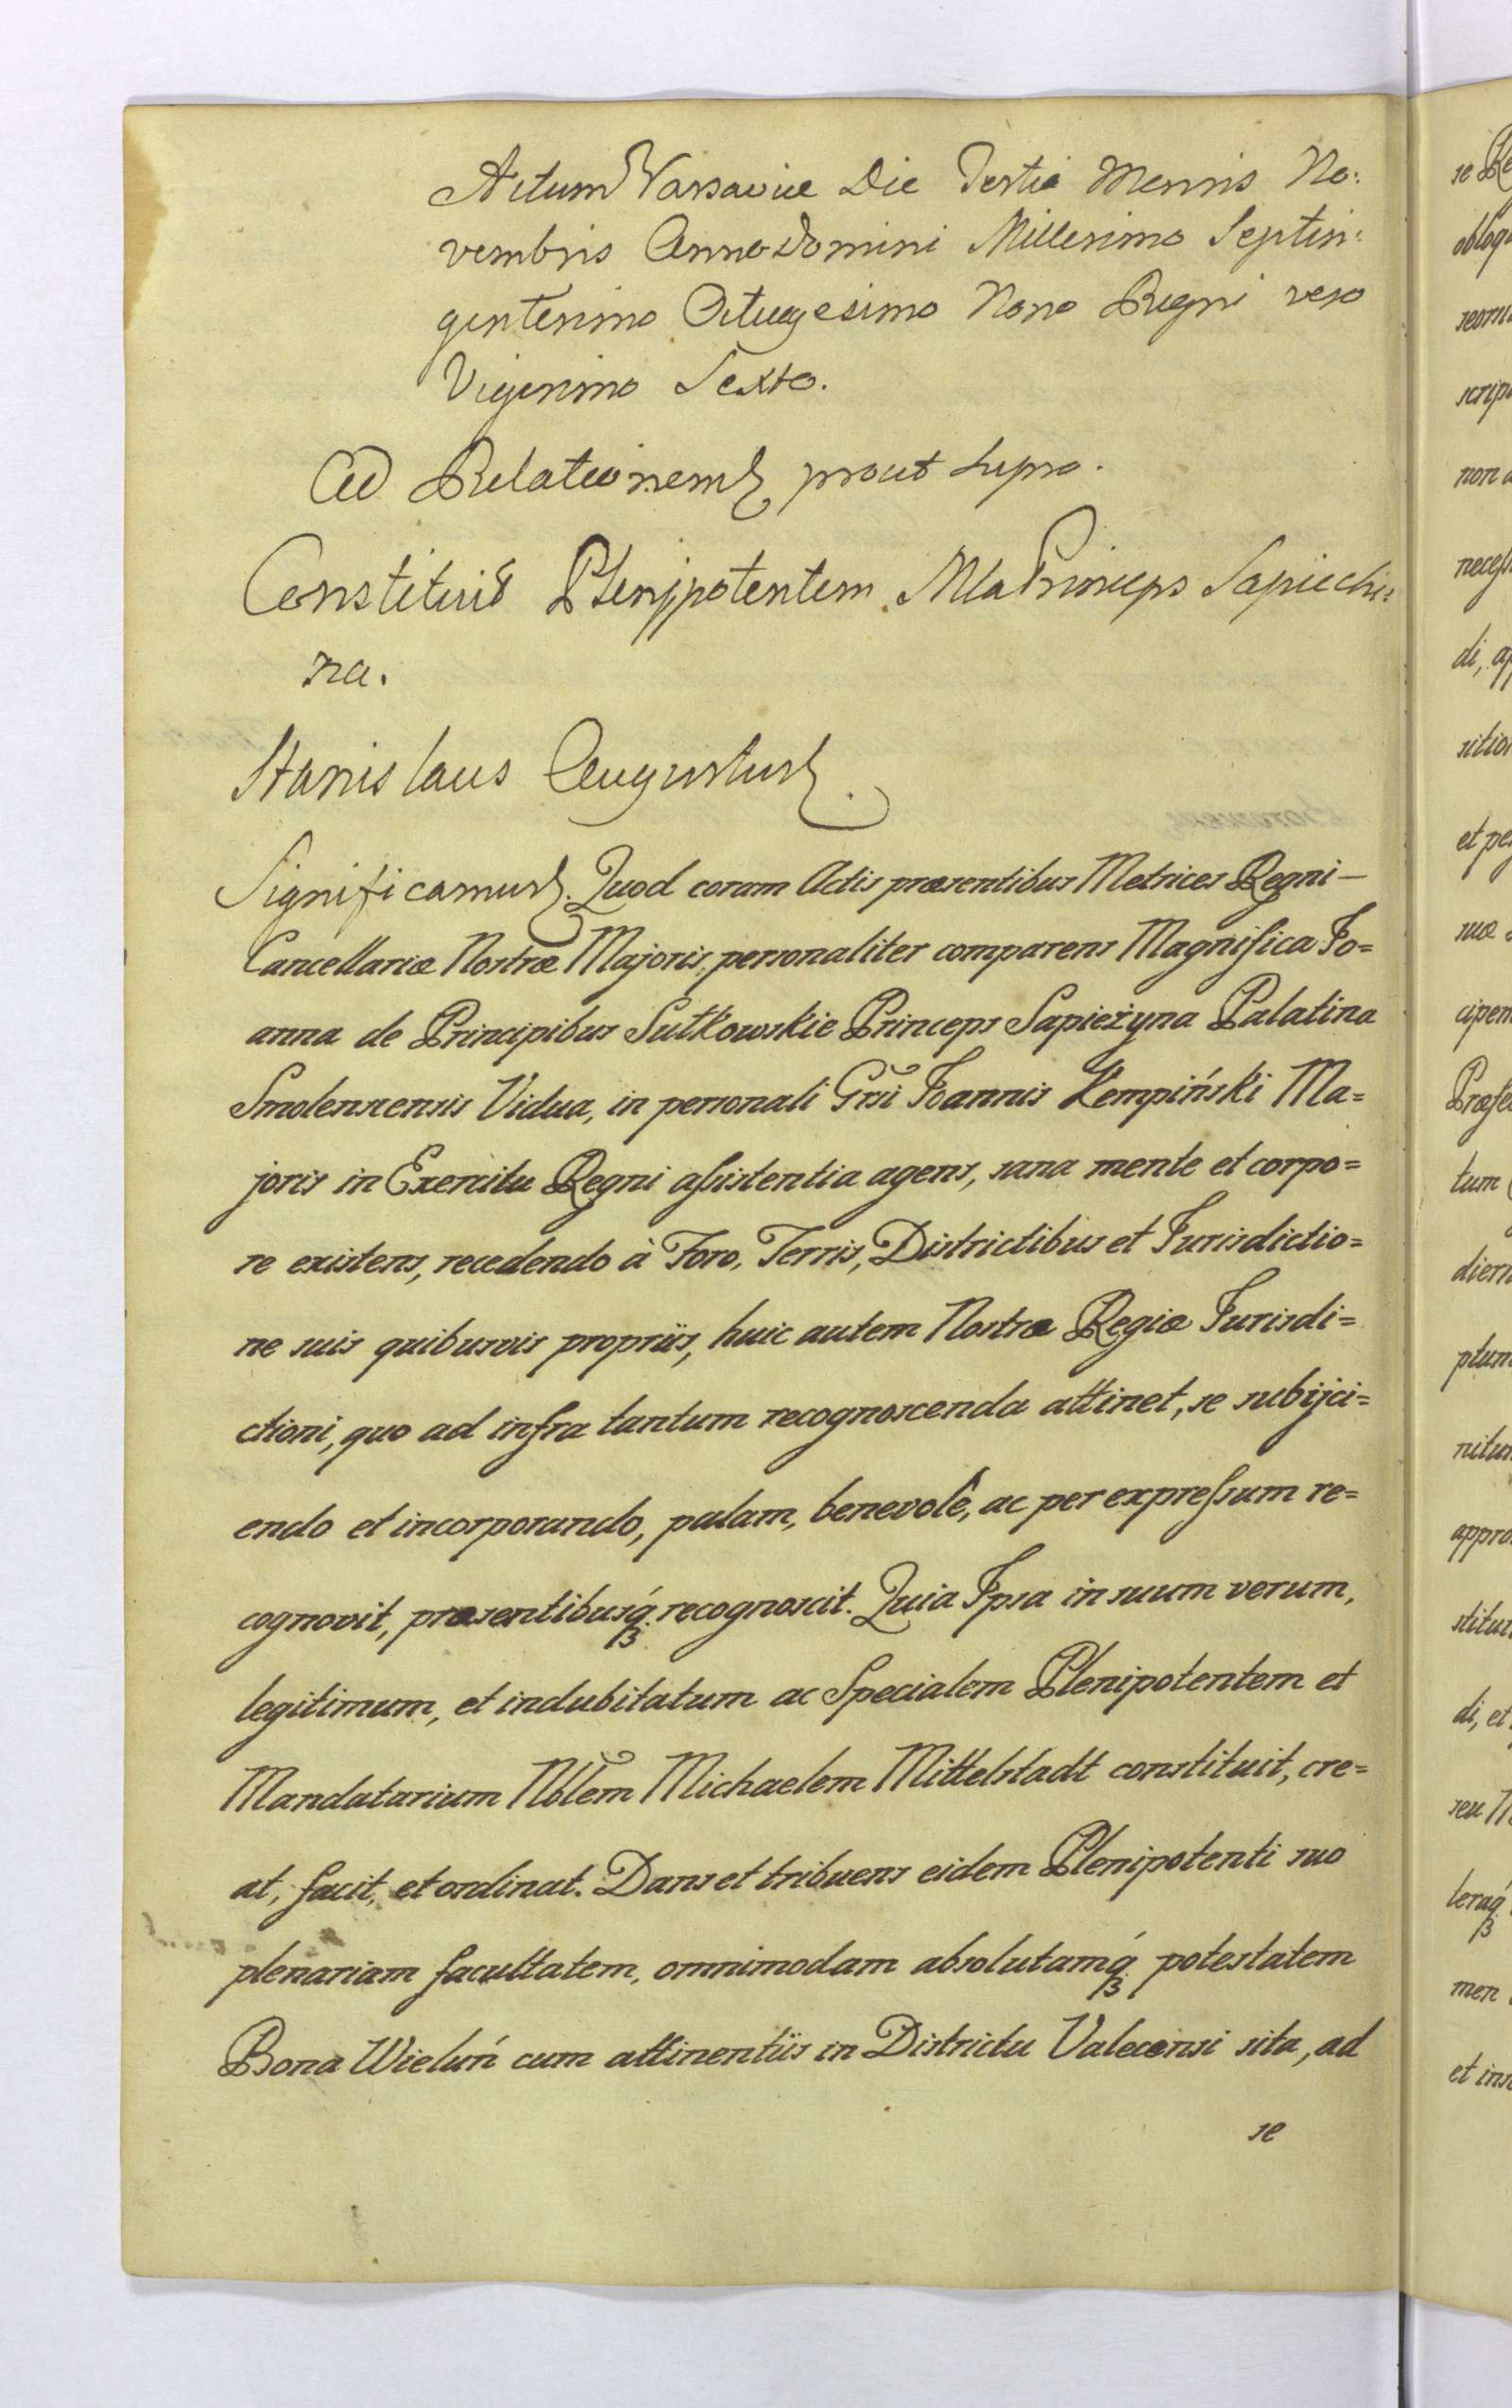 Actum Varsaviæ Die Tertia Mensis No:
vembris Anno Domini Millesimo Septin:
gentesimo Octuagesimo Nono Regni vero
Vigesimo Sexto.
Ad Relationem prout supra.
Constituit Plenipotentem Mla Princeps Sapiechi:
na.
Stanislaus Augustus.
Significamus. Quod coram Actis præsentibus Metrices Regni –
Cancellariæ Nostræ Majoris, personaliter comparens Magnifica Jo=
anna de Principibus Sułkowskie Princeps Sapieżyna Palatina
Smolenscensis Vidua, in personali Grsi Joannis Kempiński Ma=
joris in Exercitu Regni assistentia agens, sana mente et corpo=
re existens, recedendo à Foro, Terris, Districtibus et Jurisdictio=
ne suis quibusvis propriis, huic autem Nostræ Regiæ Jurisdi=
ctioni, quo ad infra tantum recognoscenda attinet, se subijci=
endo et incorporando, palam, benevolê, ac per expressum re=
cognovit, præsentibusq́ recognoscit. Quia Ipsa in suum verum,
legitimum, et indubitatum ac Specialem Plenipotentem et
Mandatarium Nblem Michaelem Mittelstadt constituit, cre=
at, facit, et ordinat. Dans et tribuens eidem Plenipotenti suo
plenariam facultatem, omnimodam absolutamq́ potestatem
Bona Wieluń cum attinentiis in Districtu Valecensi sita, ad
se